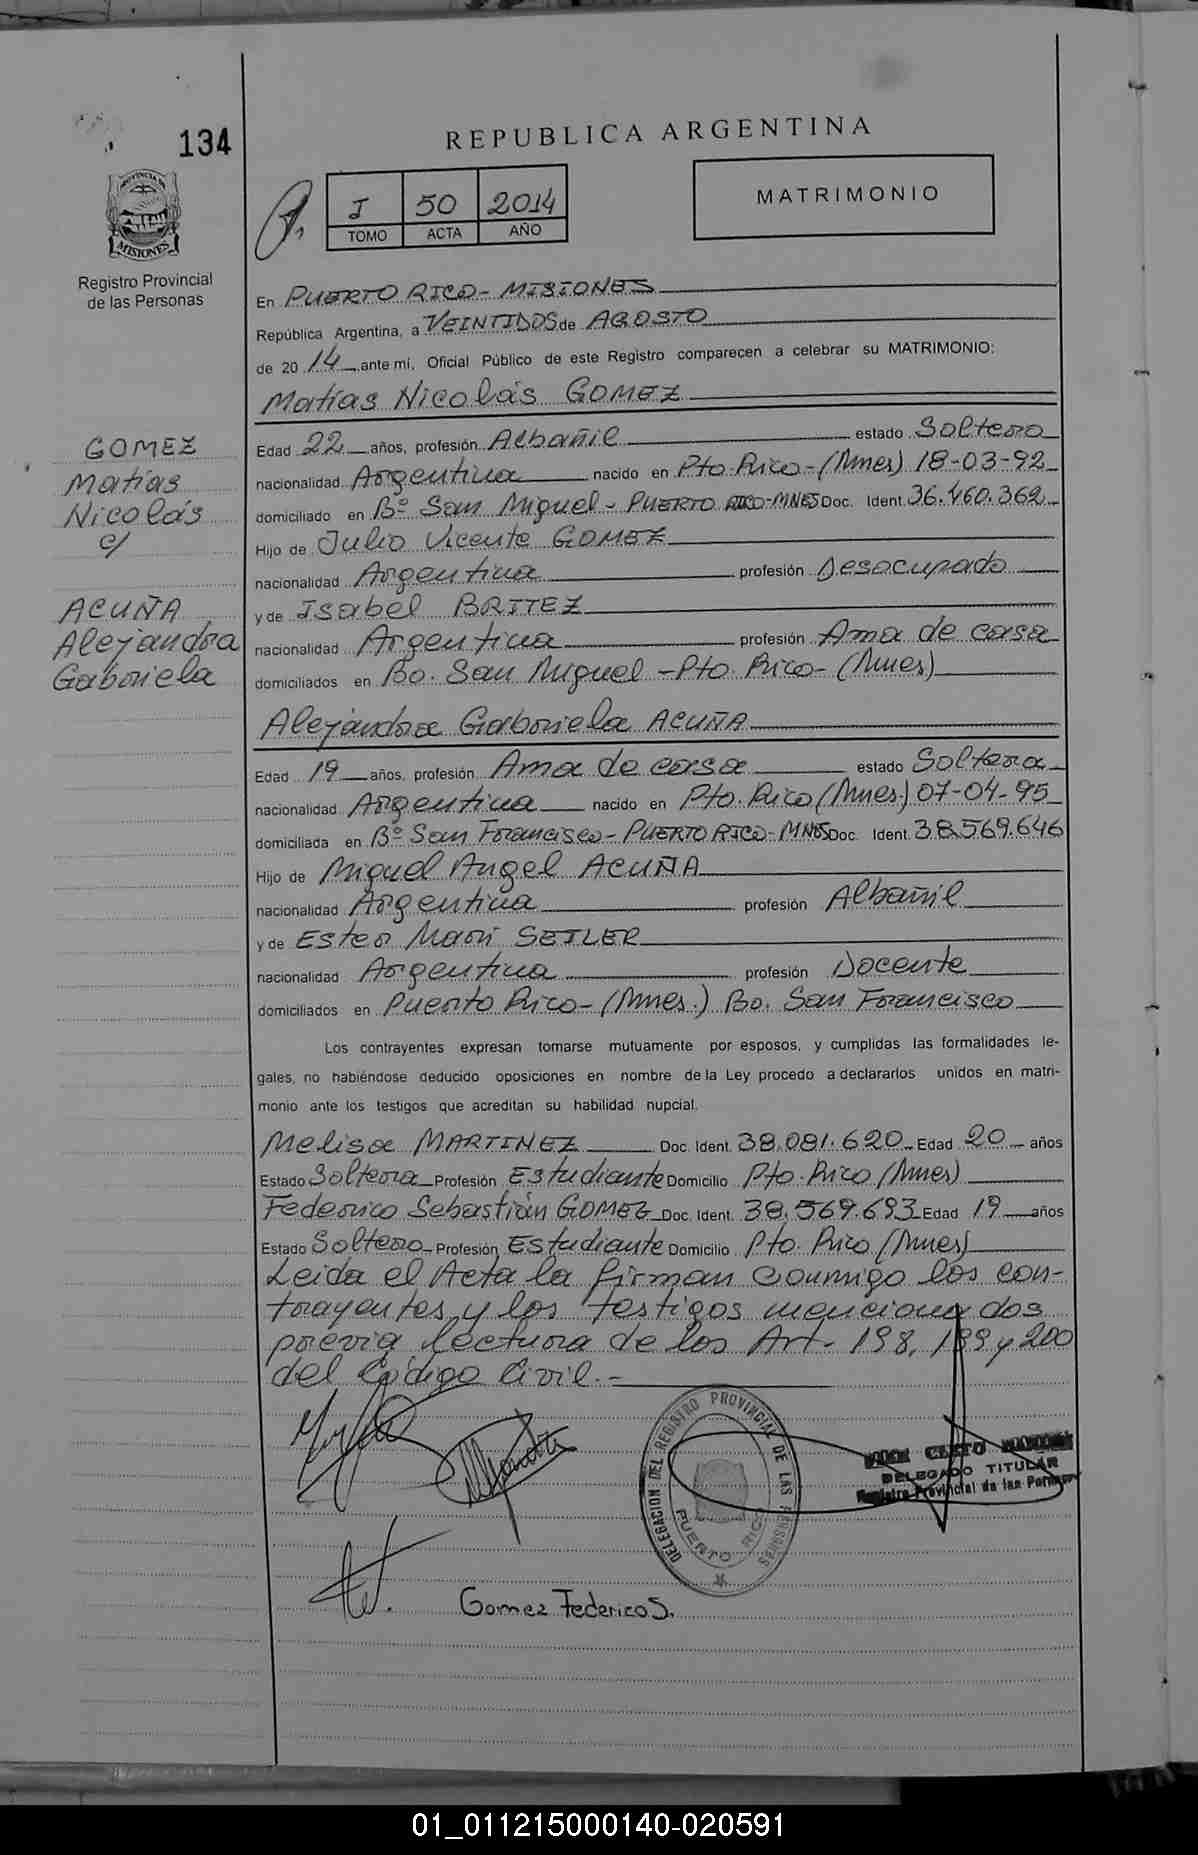 134
REPUBLICA ARGENTINA
PROVINCIA DE
MISIONES
Registro Provincial
de las Personas
I 50 2014
TOMO ACTA AÑO
MATRIMONIO
En PUERTO RICO - MISIONES
República Argentina, a VEINTIDOS de AGOSTO
de 2014 ante mi, Oficial Público de este Registro comparecen a celebrar su MATRIMONIO:
Matías Nicolás GOMEZ
GOMEZ
Matías
Nicolás
c/
ACUÑA
Alejandra
Gabriela
Edad 22 años, profesión Albañil estado Soltero
nacionalidad Argentina nacido en Pto. Rico - (Mnes) 18-03-92
domiciliado en Bº San Miguel - PUERTO RICO - MNES Doc. Ident. 36.460.362
Hijo de Julio Vicente GOMEZ
nacionalidad Argentina profesión Desocupado
y de Isabel BRITEZ
nacionalidad Argentina profesión Ama de casa
domiciliados en Bo. San Miguel - Pto. Rico - (Mnes)
Alejandra Gabriela ACUÑA
Edad 19 años, profesión Ama de casa estado Soltera
nacionalidad Argentina nacido en Pto. Rico (Mnes.) 07-04-95
domiciliada en Bº San Francisco - PUERTO RICO - MNES Doc. Ident. 38.569.646
Hijo de Miguel Angel ACUÑA
nacionalidad Argentina profesión Albañil
y de Ester Mari SEILER
nacionalidad Argentina profesión Docente
domiciliados en Puerto Rico - (Mnes.) Bo. San Francisco
Los contrayentes expresan tomarse mutuamente por esposos, y cumplidas las formalidades le-
gales, no habiéndose deducido oposiciones en nombre de la Ley procedo a declararlos unidos en matri-
monio ante los testigos que acreditan su habilidad nupcial.
Melisa MARTINEZ Doc. Ident. 38.081.620 Edad 20 años
Estado Soltera Profesión Estudiante Domicilio Pto. Rico (Mnes)
Federico Sebastián GOMEZ Doc. Ident. 38.569.693 Edad 19 años
Estado Soltero Profesión Estudiante Domicilio Pto. Rico (Mnes)
Leída el Acta la firman conmigo los con-
trayentes y los testigos mencionados
previa lectura de los Art. 198, 199 y 200
del Código Civil.-
DELEGACION DEL REGISTRO PROVINCIAL DE LAS PERSONAS
PUERTO RICO
CLETO
DELEGADO TITULAR
Registro Provincial de las Personas
Gomez Federico S.
01_011215000140-020591